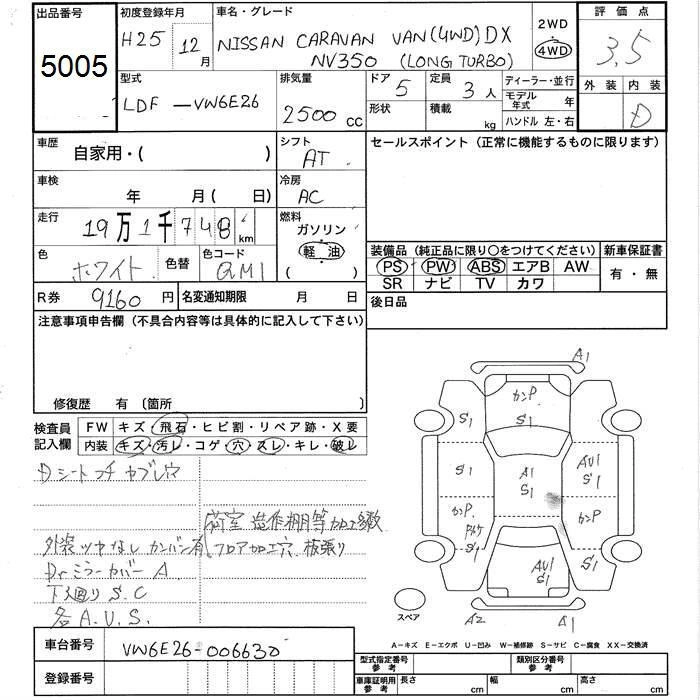 出品番号 初度登録年月 車名・グレード 2WD 評価点
5005 H25 12月 NISSAN CARAVAN VAN(4WD)DX 4WD 3,5
NV350 (LONG TURBO)
型式 排気量 ドア 定員 ディーラー・並行 外装 内装
LDF -VW6E26 2500cc 5 3人 モデル年式 年 D
形状 積載 kg ハンドル 左・右
車歴 自家用・( ) シフト AT セールスポイント (正常に機能するものに限ります)
車検 年 月( 日) 冷房 AC
走行 19万1千748km 燃料 ガソリン
軽油
( )
色 ホワイト 色替 色コード QM1
装備品 (純正品に限り○をつけてください) 新車保証書
PS PW ABS エアB AW 有・無
SR ナビ TV カワ
R券 9160円 名変通知期限 月 日 後日品
注意事項申告欄 (不具合内容等は具体的に記入して下さい)
修復歴 有 (箇所 )
検査員記入欄 FW キズ・飛石・ヒビ割・リペア跡・X要
内装 キズ・汚レ・コゲ・穴・スレ・キレ・破レ
Dシート
荷室 造作棚等加工多数
外装ツヤなし カンバン有 フロア加工穴 板張り
Drミラーカバー A
下廻り S.C
各A.U.S.
A1
カンP
S1 S1 S1
S1 A1 S1 AU1 S1
カンP カンP
S1 AU1 S1 S1
スペア A2 A1
A-キズ E-エクボ U-凹み W-補修跡 S-サビ C-腐食 XX-交換済
車台番号 VW6E26-006630
登録番号
型式指定番号 参考 類別区分番号 参考
車庫証明用 参考 長さ cm 幅 cm 高さ cm